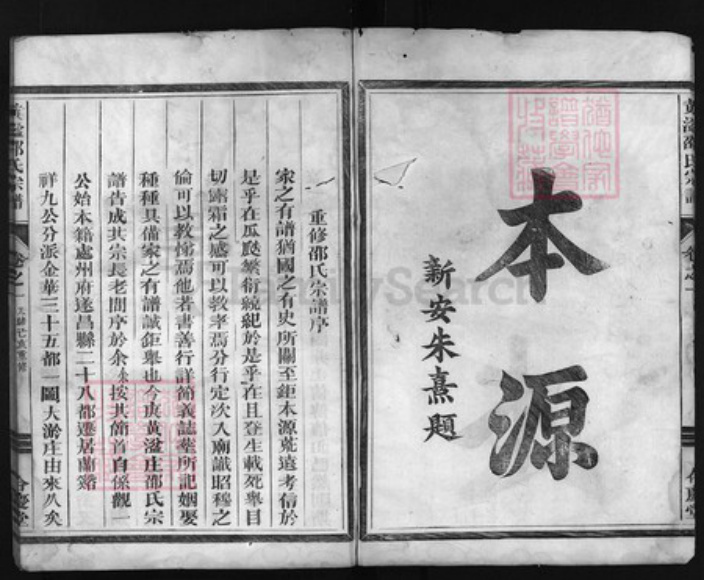 本源
新安朱熹題
黃湓邵氏宗譜
卷之一
重修邵氏宗譜序
家之有譜猶國之有史所關至鉅本源蕘遠考信於
是乎在瓜瓞繁衍統紀於是乎在且登生載死舉目
切露霜之感可以教孝焉分行定次入廟識昭穆之
倫可以教悌焉他若書善行詳簡義誌塋所記姻娶
種種具備家之有譜誠鉅舉也今庚黃湓庄邵氏宗
譜告成其宗長老問序於余余按其簡首自係觀一
公始本籍處州府遂昌縣二十八都遷居蘭谿
祥九公分派金華三十五都一圖大淤庄由來久矣
黃湓邵氏宗譜
卷之一
FamilySearch